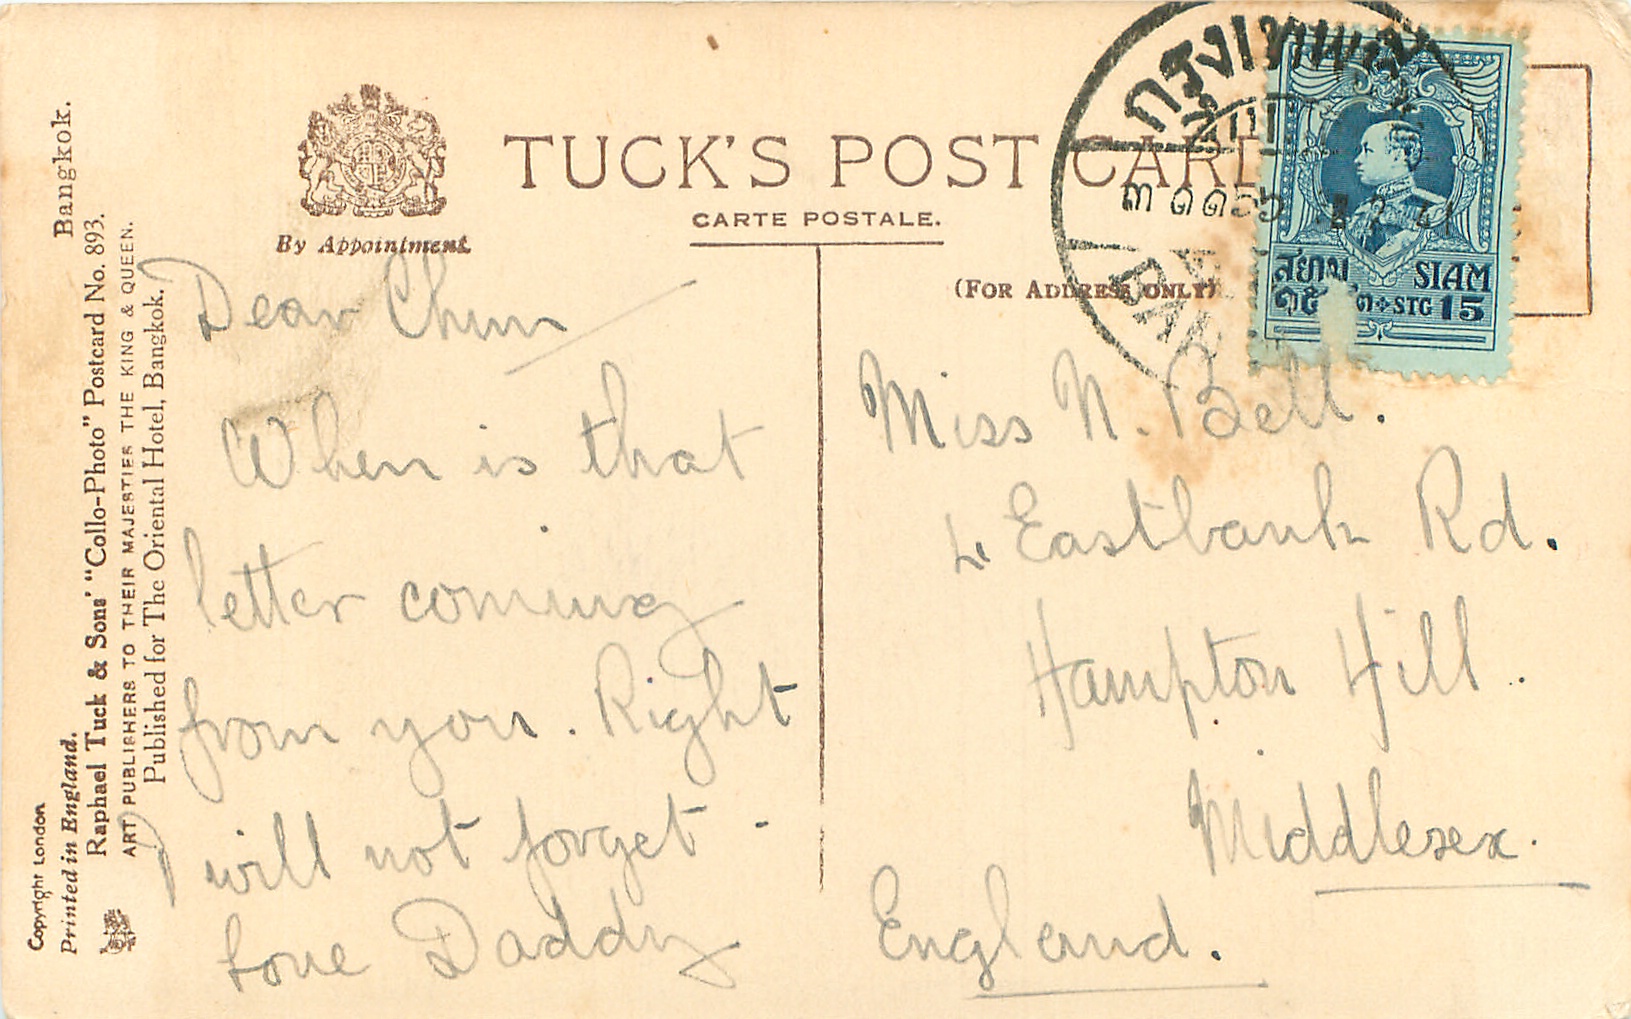 Bangkok.
Raphael Tuck & Sons' "Collo-Photo" Postcard No. 893.
ART PUBLISHERS TO THEIR MAJESTIES THE KING & QUEEN.
Published for The Oriental Hotel, Bangkok.
Copyright London
Printed in England.
By Appointment.
TUCK'S POST CARD
CARTE POSTALE.
(FOR ADDRESS ONLY)
สยาม SIAM
STG 15
Dear Chum
When is that
letter coming
from you. Right
I will not forget.
Love Daddy
Miss N. Bell.
4 Eastbank Rd.
Hampton Hill.
Middlesex.
England.